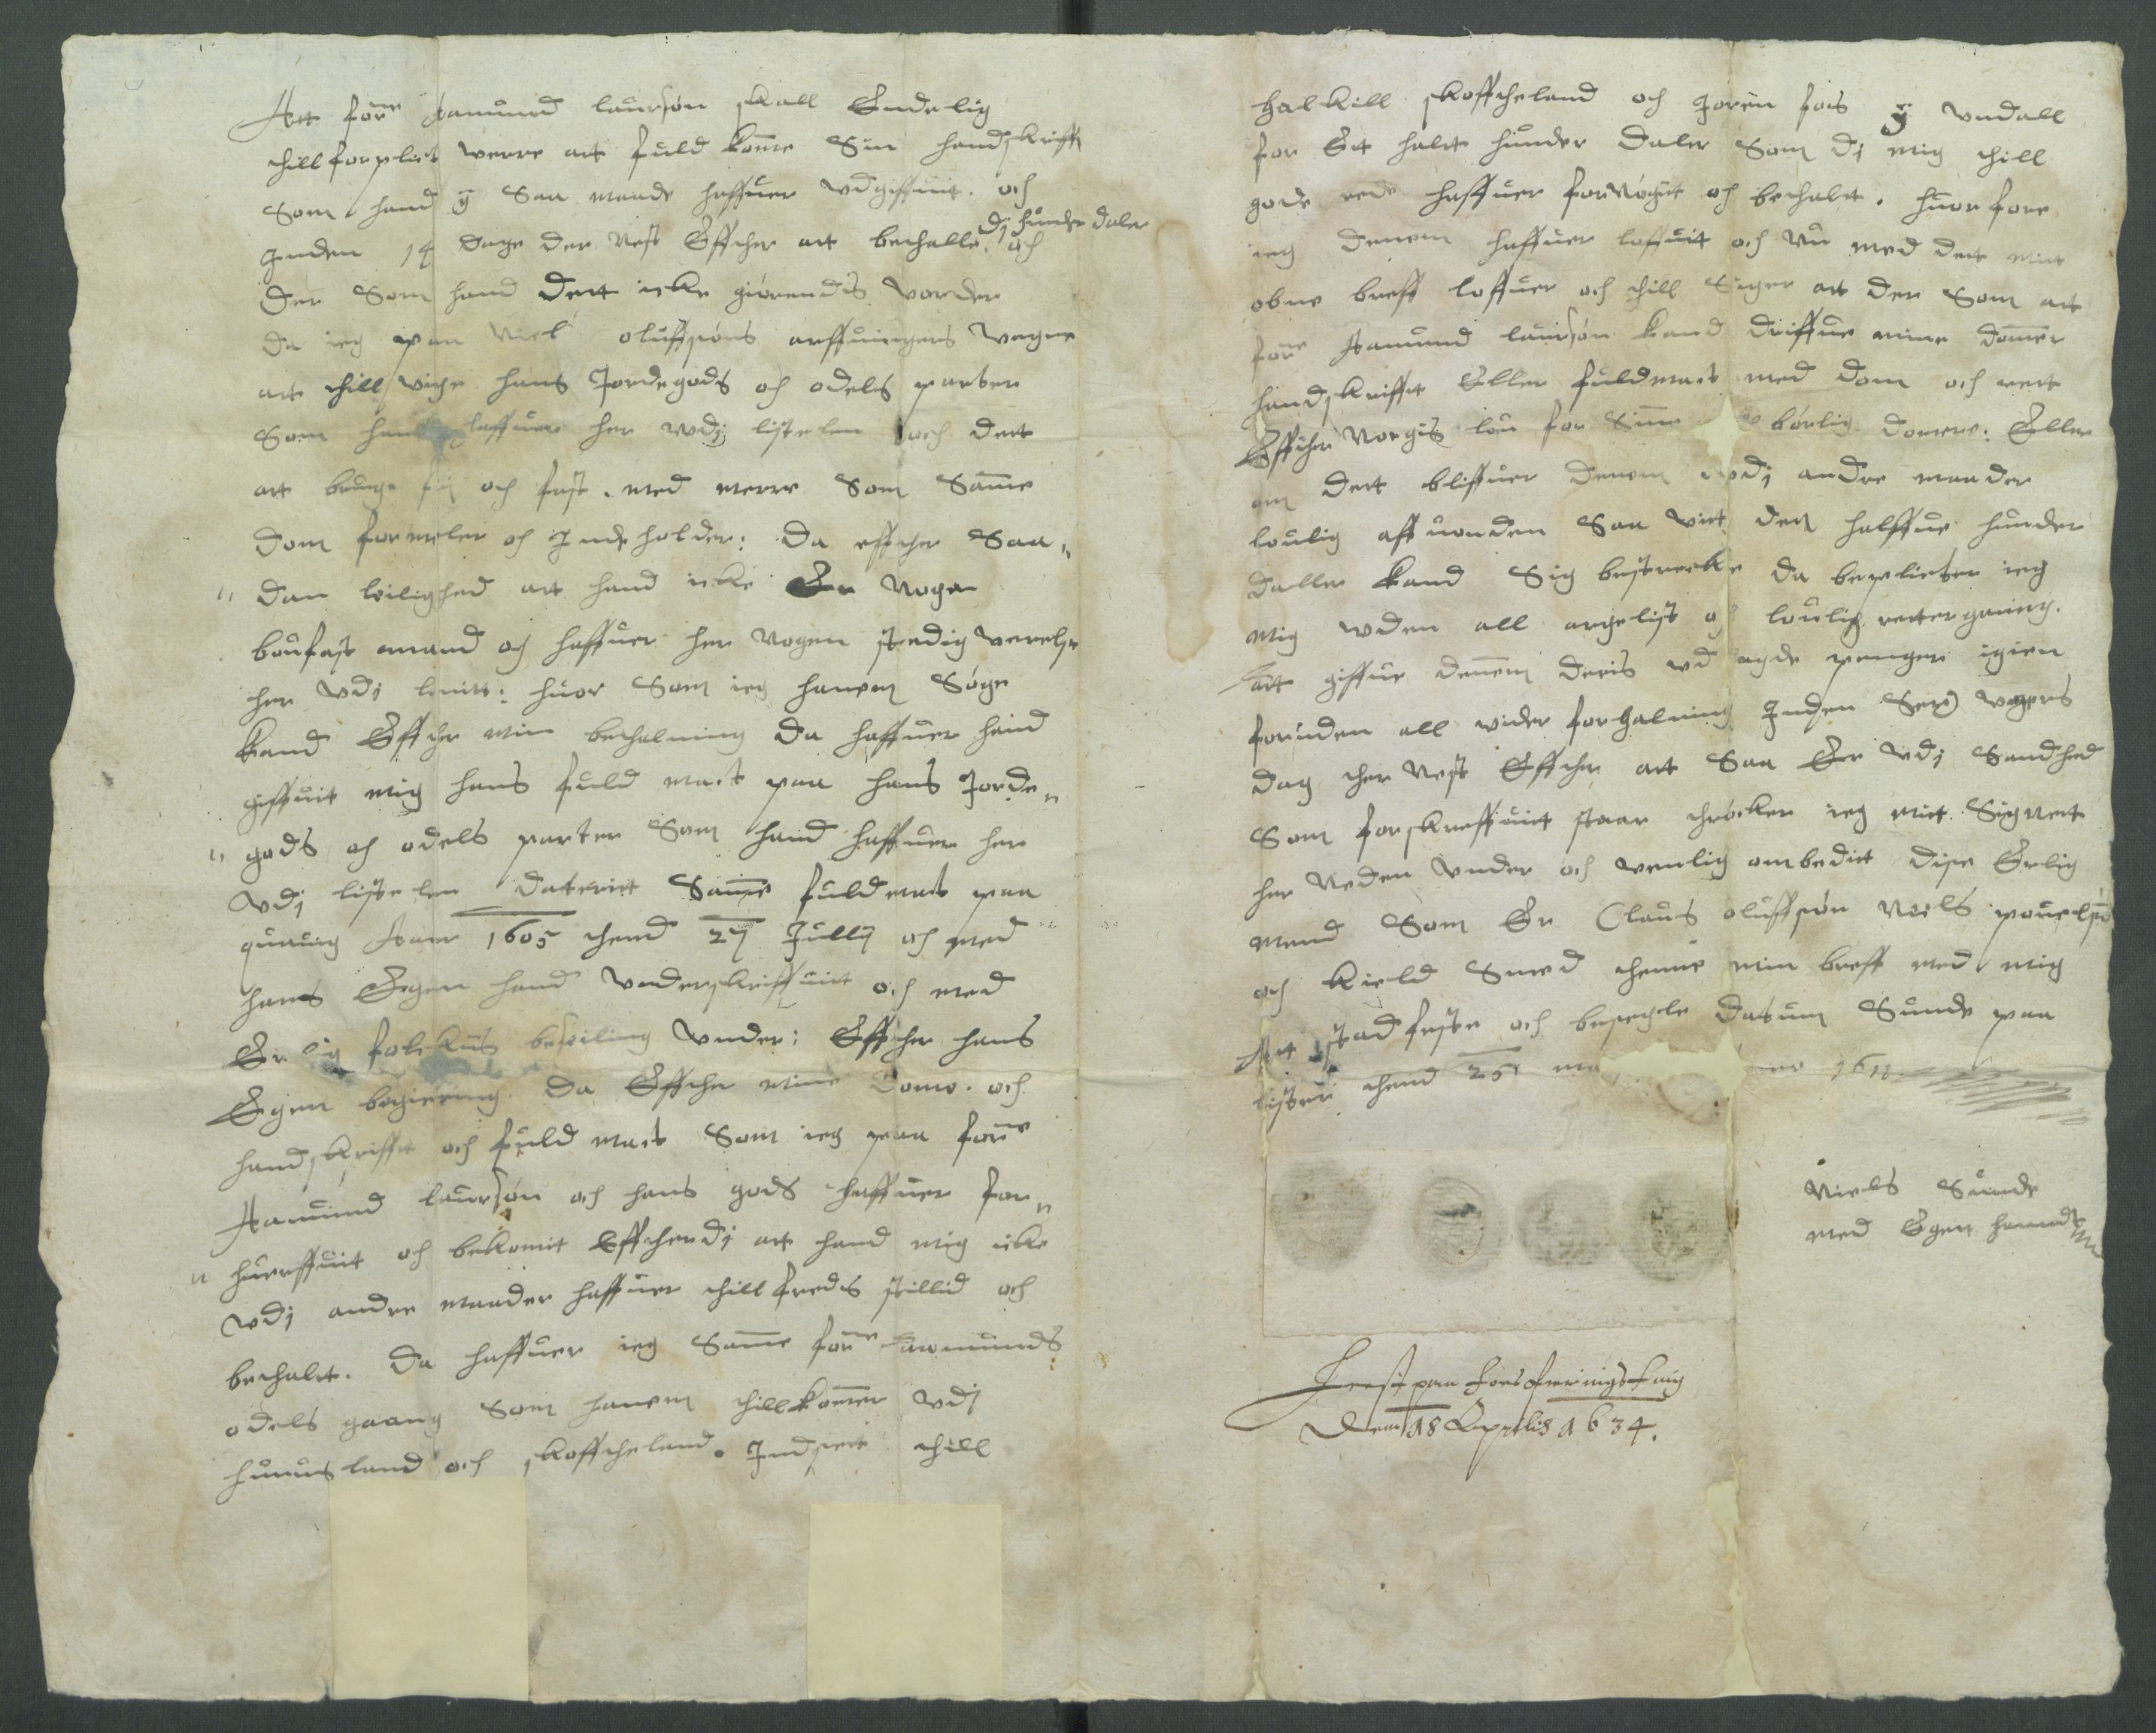 Att forne Aamund laursøn skall Endelig
thillforplict werre att fuld komme Sin handskrifft
Som hand ij Saa maade haffuer vdgiffuit. och
Inden 14 dage der nest Effther att bethalle. di hunder daler och
der Som hand dett icke giørendis vorder
da ieg paa Niels oluffsøns arffuingers Wegne
att thill vige hans Jordegods och odels parter
Som hand haffuer her wdj listelen och dett
att bruge frj och fast. med merre Som Samme
dom formeler och Inde holder: da effther Saa„
„ dan leilighed att hand icke Er Nogen
boufast mand och haffuer her Nogen stedig verelse
her vdj linitt: huor Som ieg hanem Søge
kand Effther min bethalning da haffuer hand
giffuit mig hans fuld mact paa hans Jorde„
„ gods och odels parter Som hand haffuer her
vdj listelen daterirt Samme fuldmact paa
quauig Aar 1605 thend 27 Jullij och med
hans Egen hand vnderskriffuitt och med
Erlig folckis beseiling vnder: Effther hans
Egen begiering. da Effther mine domme. och
handskrifft och fuld mact Som ieg paa forne
Aamund laursøn och hans gods haffuer for„
„ huerffuit och bekomit Effthendj att hand mig icke
wdj andre maader haffuer thillfreds stillid och
bethalt. da haffuer ieg Samme forne Aamunds
odels gaang Som hanem thillkommer vdj
huuusland och skofftheland. Indsett thill
halkill skofftheland och Joren fos ij vndall
for Ett halt hunder daler Som dj mig thill
gode rede haffuer fornøgitt och bethalt. huorfore
ieg denem haffuer loffuit och nu med dett mitt
obne breff loffuer och thill Siger att der Som att
forne Aamund laursøn kand driffue mine dommer
handskrifft Eller fuldmact med dom och rett
Effther Norgis lou for Sine børlig domere: Eller
om dett bliffuer denem wdj andre maader
loulig affuonden Saa vitt den halffue hunder
daller kand Sig bestrecke da beplicter ieg
mig wden all argelist och loulig rettergaaing.
att giffue denem deris vdlagde penger igien
foruden all vider forhalning Inden Sex vgers
dag ther nest Effther att Saa Er vdj Sandhed
Som forskreffuit staar thrøcker ieg mitt Signett
her Neden vnder och venlig ombeditt disse Erlig
mend Som Er Claus oluffsøn Niels pouelsøn
och kield Smed thenne min breff med mig
att stadfeste och besegle datum Sunde paa
lister thend 25 1611
Niels Sunde
med Egen hannd
Lest paa
Den 18 Aprilis 1634.